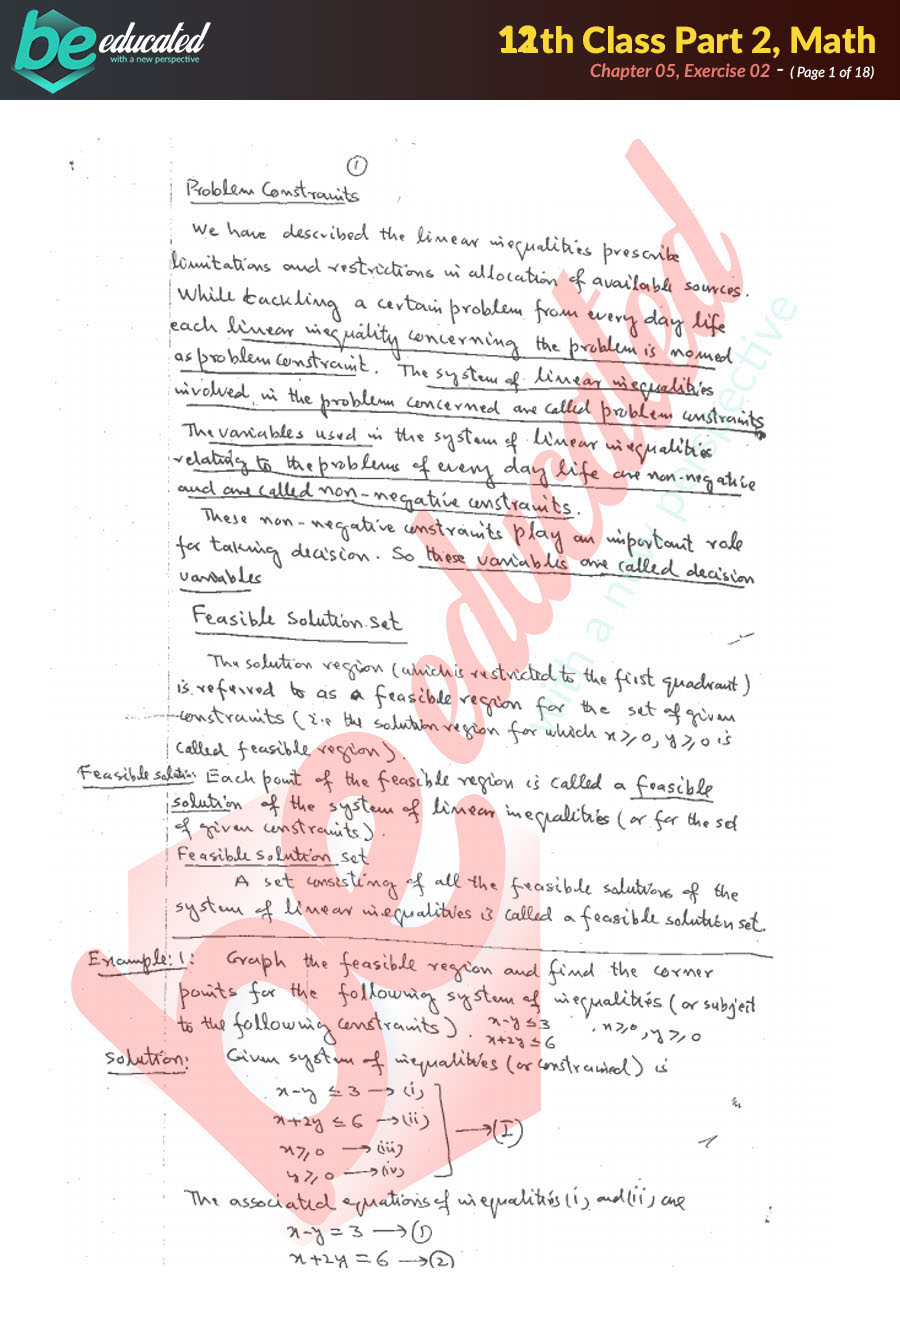 be educated
with a new perspective
12th Class Part 2, Math
Chapter 05, Exercise 02 - ( Page 1 of 18)
1
Problem Constraints
We have described the linear inequalities prescribe
limitations and restrictions in allocation of available sources.
While tackling a certain problem from every day life
each linear inequality concerning the problem is named
as problem constraint. The system of linear inequalities
involved in the problem concerned are called problem constraints
The variables used in the system of linear inequalities
relating to the problems of every day life are non-negative
and are called non-negative constraints.
These non-negative constraints play an important role
for taking decision. So these variables are called decision
variables
Feasible Solution Set
The solution region (which is restricted to the first quadrant)
is referred to as a feasible region for the set of given
constraints (i.e the solution region for which x≥0, y≥0 is
called feasible region).
Feasible solution: Each point of the feasible region is called a feasible
solution of the system of linear inequalities (or for the set
of given constraints).
Feasible solution set
A set consisting of all the feasible solutions of the
system of linear inequalities is called a feasible solution set.
Example: 1: Graph the feasible region and find the corner
points for the following system of inequalities (or subject
to the following constraints). x-y≤3 , x≥0, y≥0
x+2y≤6
Solution: Given system of inequalities (or constrained) is
x-y ≤ 3 → (i)
x+2y ≤ 6 → (ii)
→ (I)
x≥0 → (iii)
y≥0 → (iv)
The associated equations of inequalities (i) and (ii) are
x-y = 3 → ①
x+2y = 6 → ②
be educated
with a new perspective